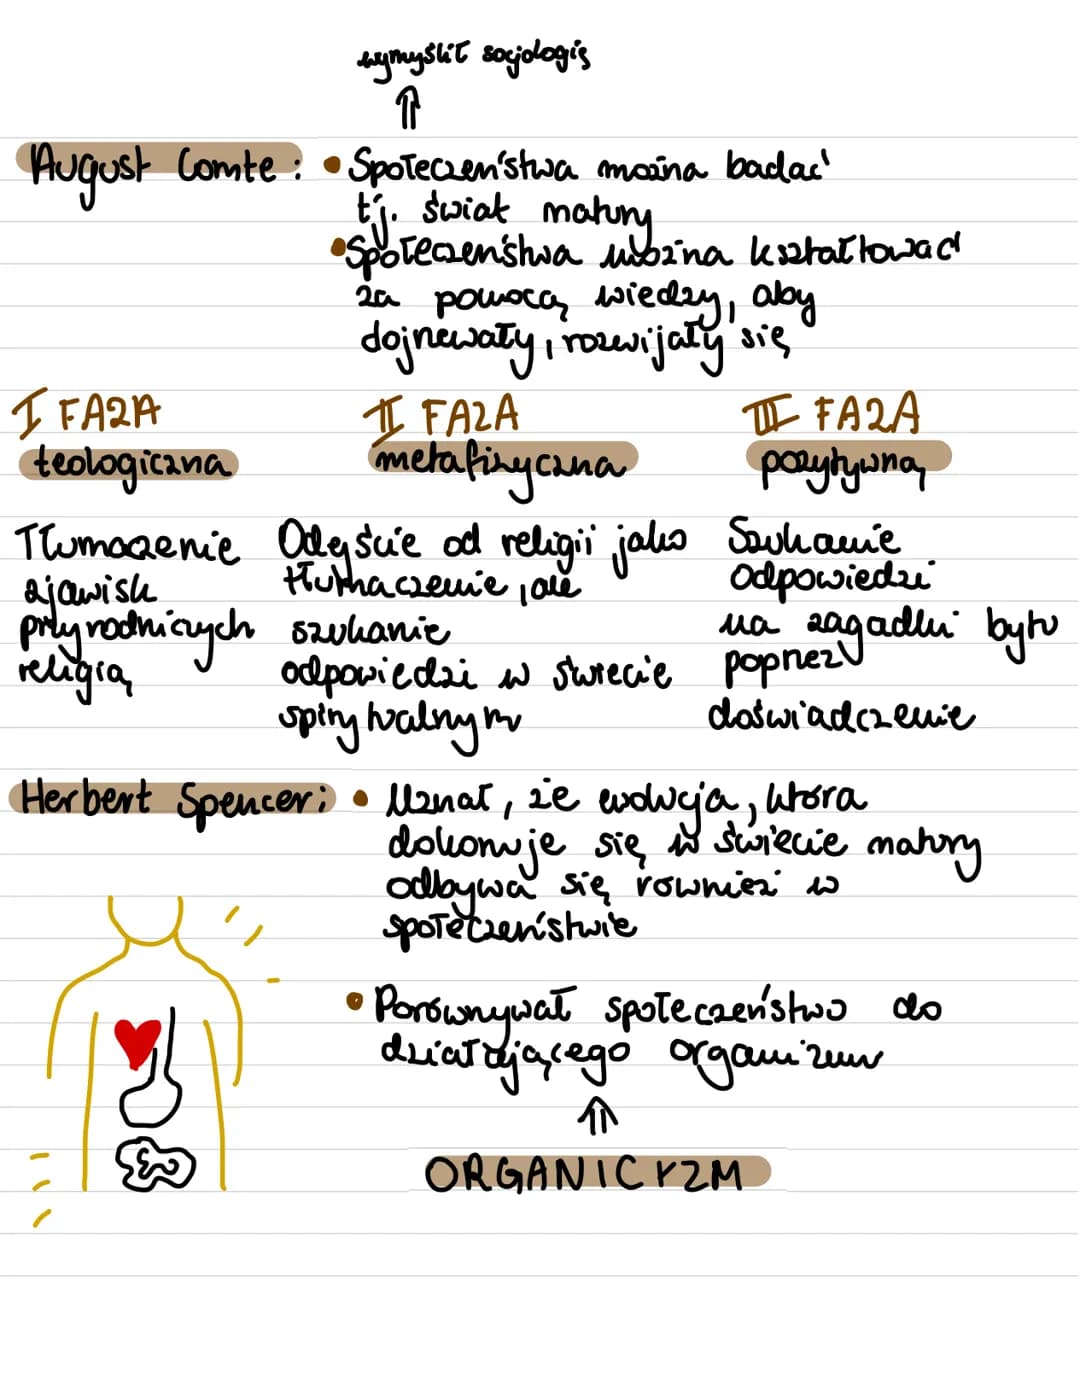 wymyślił socjologię
August Comte: • Społeczeństwa można badać
tj. świat natury
• Społeczeństwa można kształtować
za pomocą wiedzy, aby
dojrzewały, rozwijały się
I FAZA
II FAZA
III FAZA
teologiczna
metafizyczna
pozytywną
Tłumaczenie
zjawisk
przyrodniczych
religią
Odejście od religii jako
tłumaczenie, ale
szukanie
odpowiedzi w świecie
spirytualnym
Szukanie
odpowiedzi
na zagadki bytu
poprzez
doświadczenie
Herbert Spencer: • Uznał, że ewolucja, która
dokonuje się w świecie natury
odbywa się również w
społeczeństwie
• Porównywał społeczeństwo do
działającego organizmu
ORGANICYZM